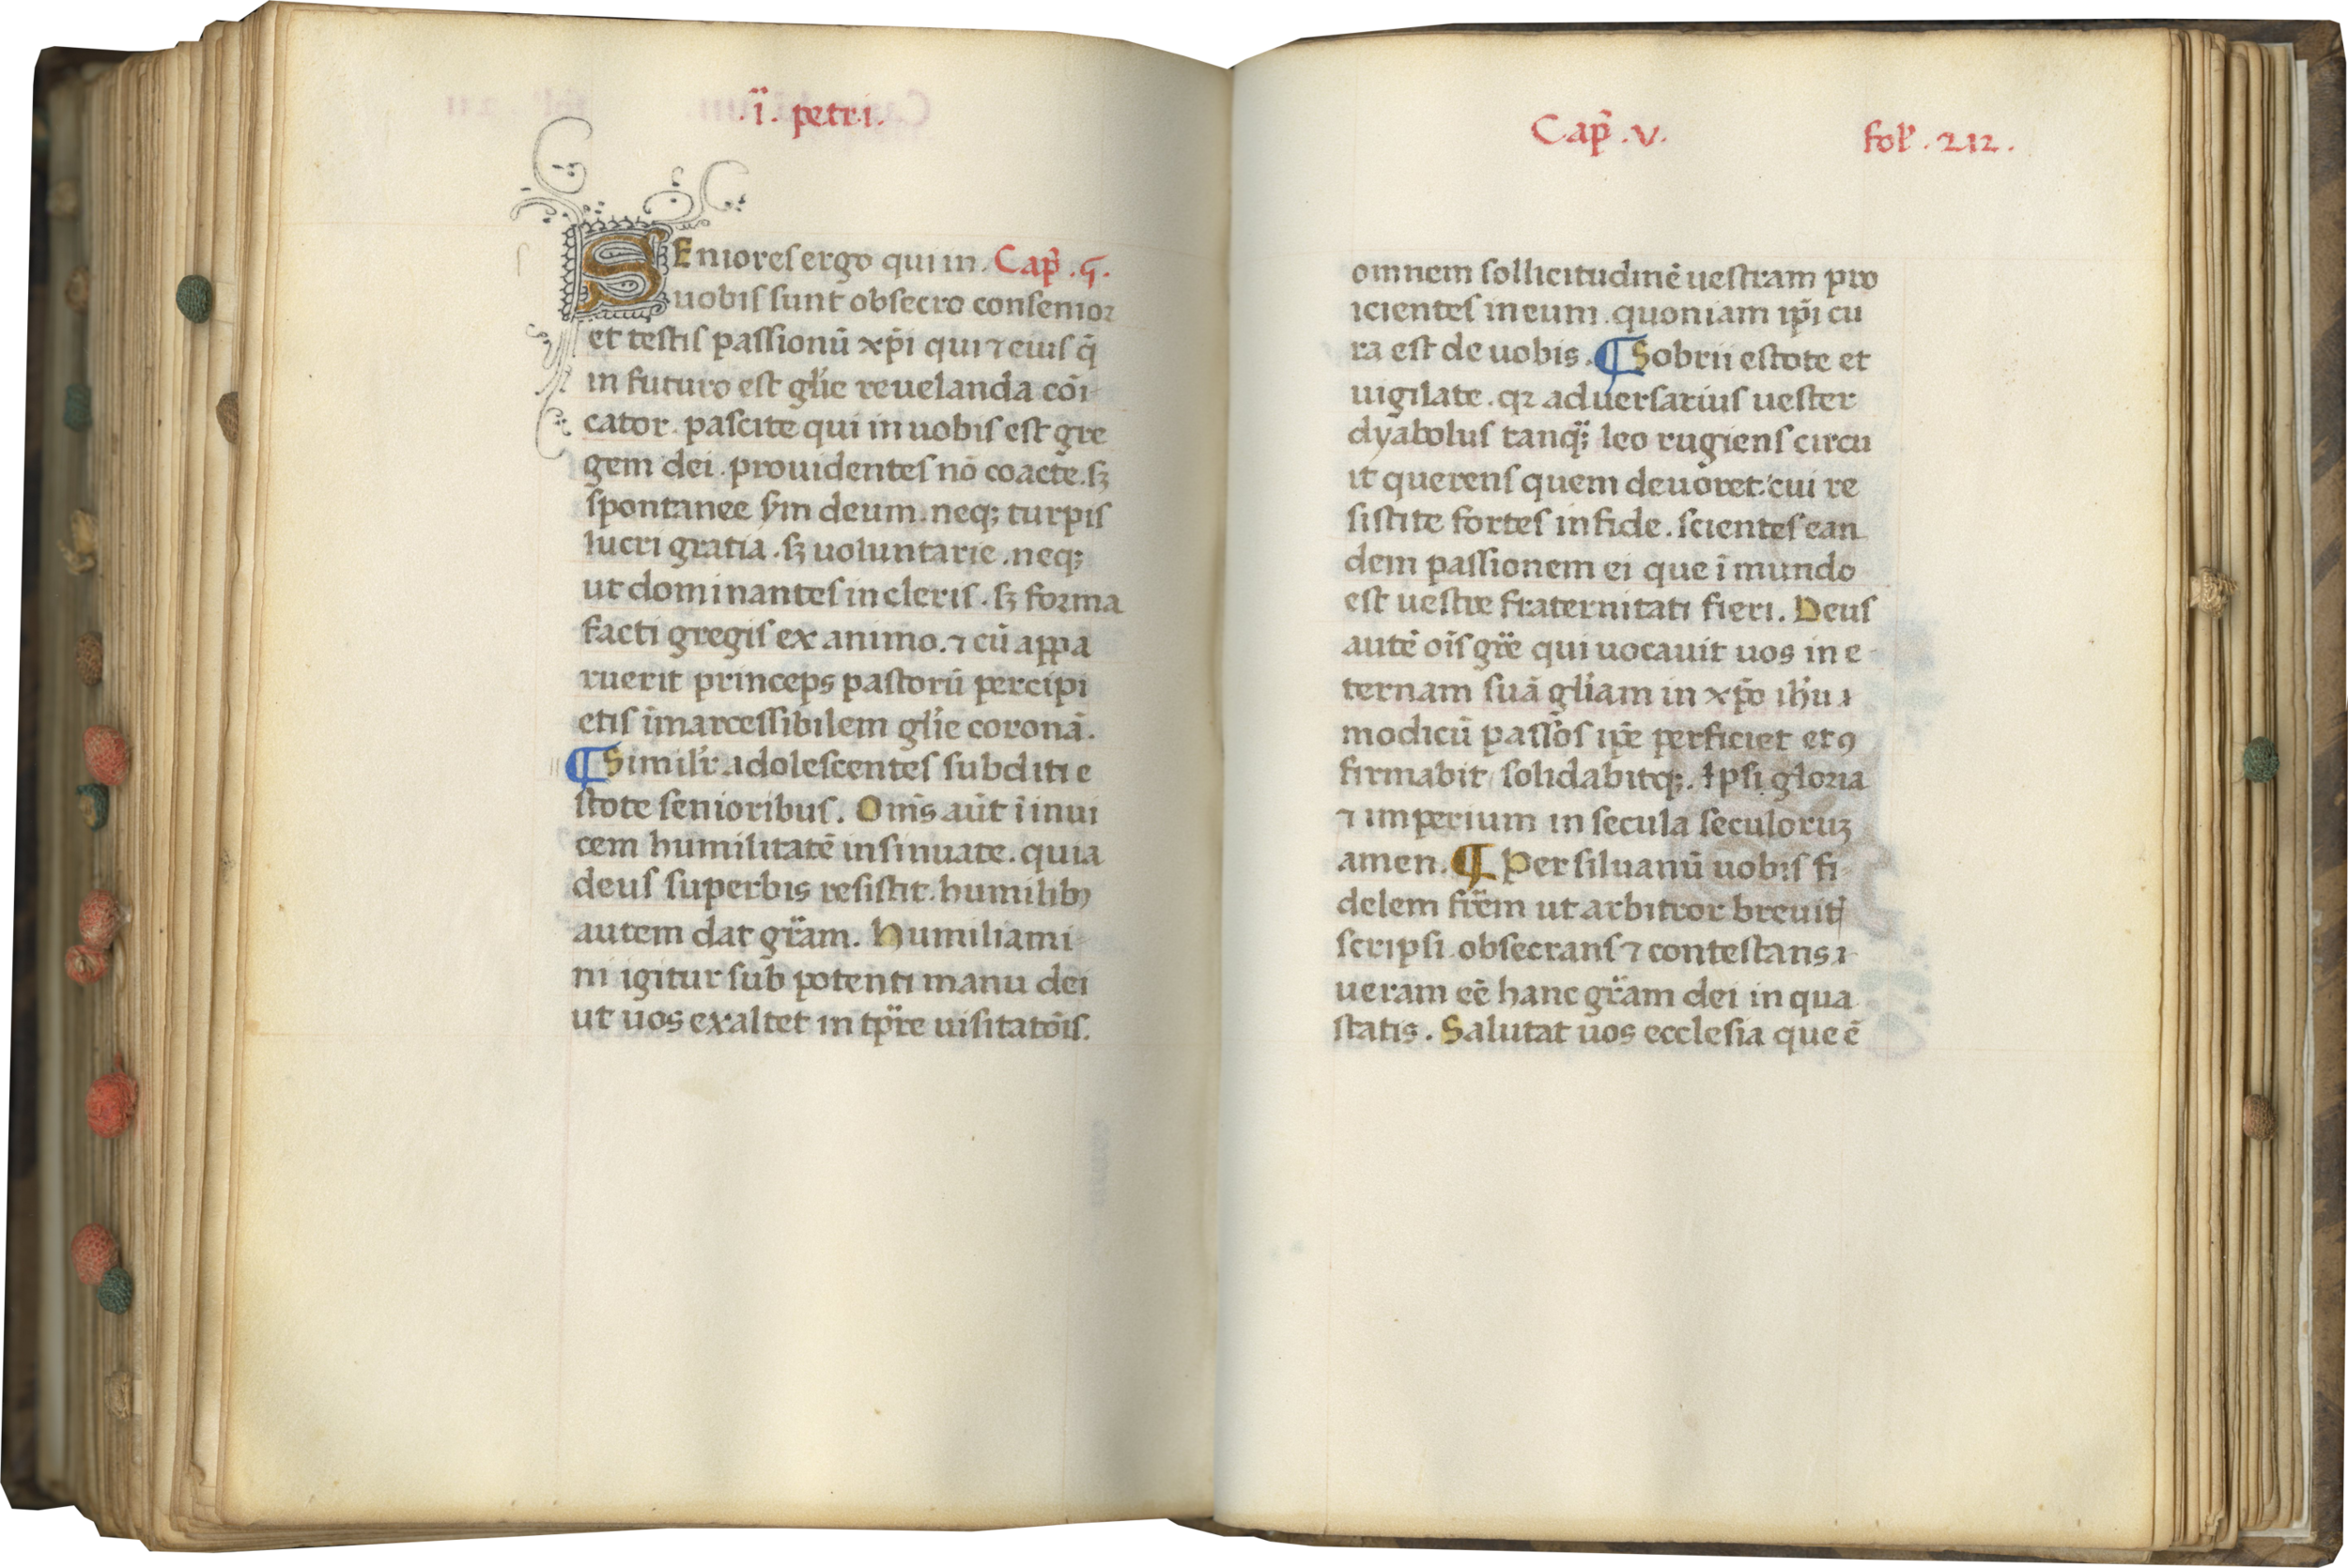 .ï. petri.
SEniores ergo qui in. Cap̃ .ҁ.
uobis sunt obsecro consenior
et testis passionũ xp̃i qui ⁊ eius q̃
in futuro est gl̃ie reuelanda cõi
cator. pascite qui in uobis est gre
gem dei. prouidentes nõ coacte. sꝫ
spontanee sm̃ deum. neqꝫ turpis
lucri gratia. sꝫ uoluntarie. neqꝫ
ut dominantes in cleris. sꝫ forma
facti gregis ex animo. ⁊ cũ appa
ruerit princeps pastorũ percipi
etis ĩmarcessibilem gl̃ie coronã.
¶ Simil̃r adolescentes subditi e
stote senioribus. Om̃s aũt ĩ inui
cem humilitatẽ insinuate. quia
deus superbis resistit. humilibꝫ
autem dat gr̃am. Humiliami
ni igitur sub potenti manu dei
ut uos exaltet in tp̃re uisitatõis.
Cap̃ .v. fol̃ .212.
omnem sollicitudinẽ uestram pro
icientes in eum. quoniam ip̃i cu
ra est de uobis. ¶ Sobrii estote et
uigilate. qꝛ aduersarius uester
dyabolus tanqꝫ leo rugiens circu
it querens quem deuoret. cui re
sistite fortes in fide. scientes ean
dem passionem ei que ĩ mundo
est uestre fraternitati fieri. Deus
autẽ oĩs gr̃e qui uocauit uos in e
ternam suã gl̃iam in xp̃o ih̃u
modicũ passos ip̃e perficiet et ꝯ
firmabit solidabitqꝫ. Ipsi gloria
⁊ imperium in secula seculoruꝫ
amen. ¶ Per siluanũ uobis fi
delem fr̃em ut arbitror breuit̃
scripsi obsecrans ⁊ contestans
ueram eẽ hanc gr̃am dei in qua
statis. Salutat uos ecclesia que ẽ